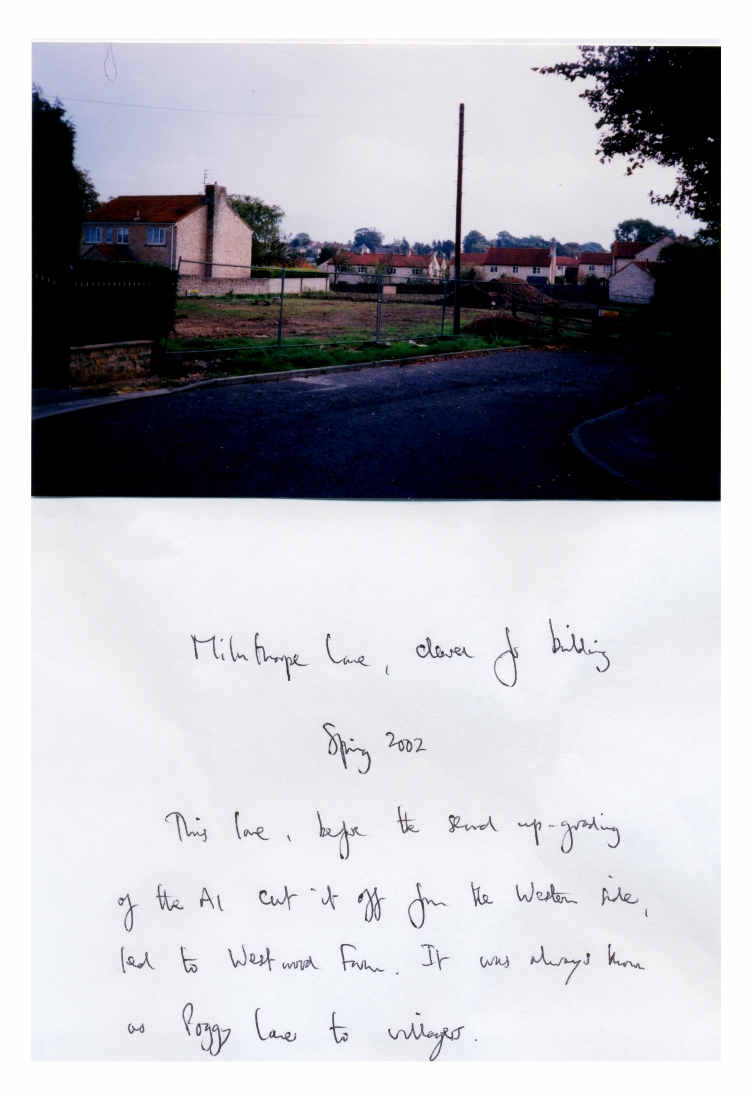 Milnthorpe Lane, cleared for building
Spring 2002
This lane, before the second up-grading
of the A1 cut it off from the Western side,
led to Westwood Farm. It was always known
as Poggy Lane to villagers.